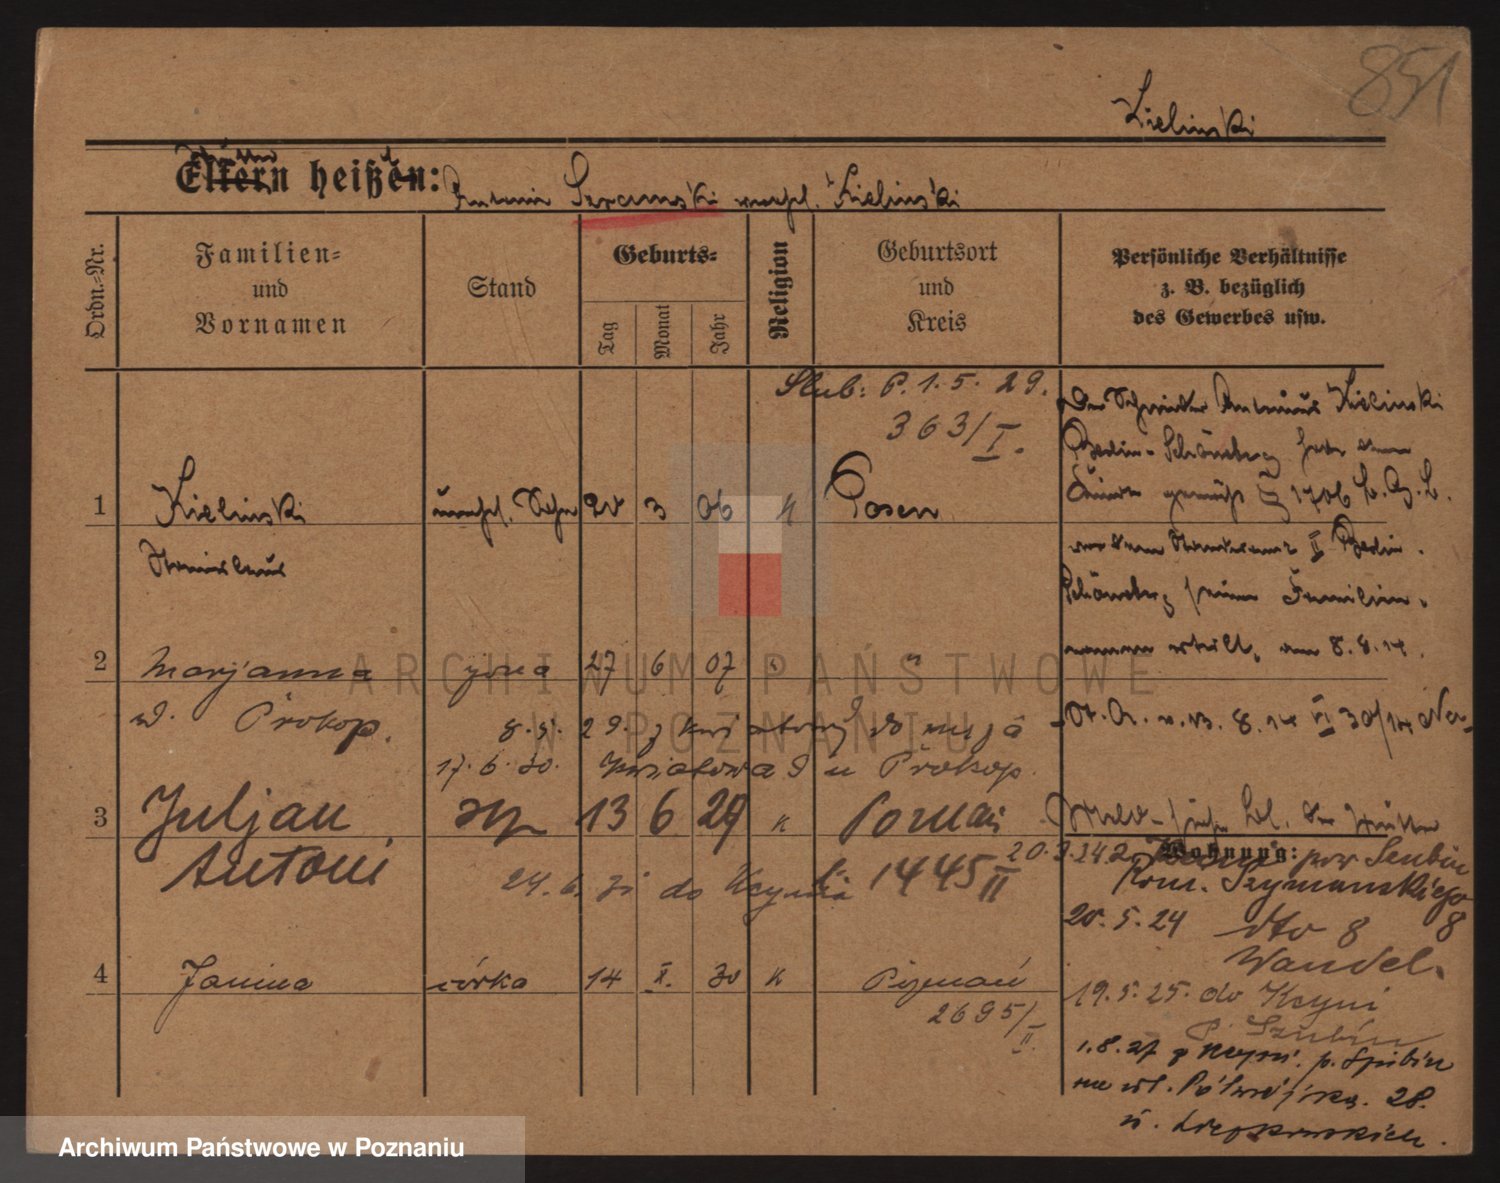 851
Kielinski
Eltern heißen: Mutter heißt
Antonie Szramski verehl. Kielinski
Ordn.-Nr.
Familien-
und
Vornamen
Stand
Geburts-
Tag
Monat
Jahr
Religion
Geburtsort
und
Kreis
Persönliche Verhältnisse
z. B. bezüglich
des Gewerbes usw.
Ślub: P. 1. 5. 29.
363/I.
1 Kielinski unehel. Sohn 20 3 06 K Posen
Stanislaus
Der Schneider Antonius Kielinski
Berlin-Schöneberg hat dem
Kinde gemäß § 1706 B.G.B.
vor dem Standesamt II Berlin-
Schöneberg seinen Familien-
namen erteilt, am 8.8.14.
2 Marjanna żona 27 6 07 "
d. Prokop.
8. 5. 29. z
17. 6. 30. Kwiatowa 9 u Prokop.
St. A. v. 13. 8. 14 VI 30/14
3 Juljan syn 13 6 29 K Poznań
Antoni
24. 6. 31 do Kcynia 1445 II
Wohnung:
pow Szubin
Rom. Szymańskiego
8
20. 5. 24 dto 8
Wandel.
4 Janina córka 14 X. 30 K Poznań
2695/II.
19. 5. 25. do Kcyni
p. Szubin
1. 8. 27 z Kcyni. p. Szubin
na ul. Półwiejska. 28.
ARCHIWUM PAŃSTWOWE
W POZNANIU
Archiwum Państwowe w Poznaniu